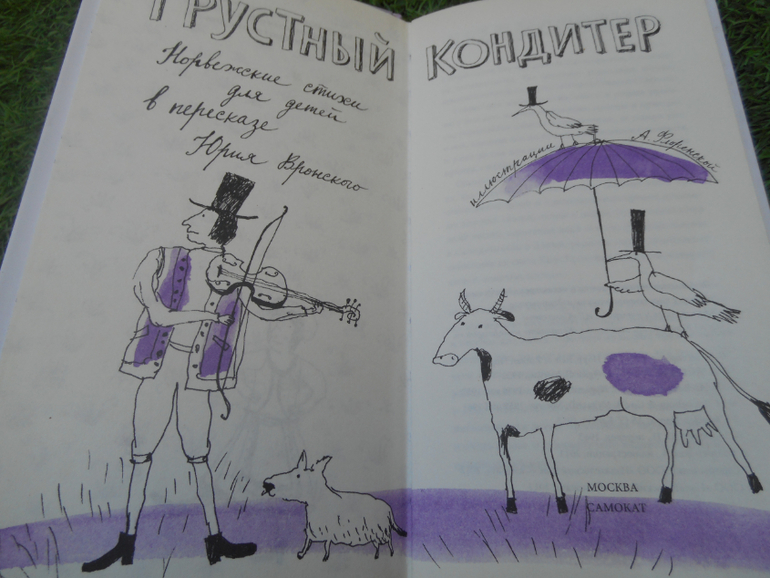 ГРУСТНЫЙ КОНДИТЕР
Норвежские стихи
для детей
в пересказе
Юрия Вронского
иллюстрации А. Флоренской
МОСКВА
САМОКАТ